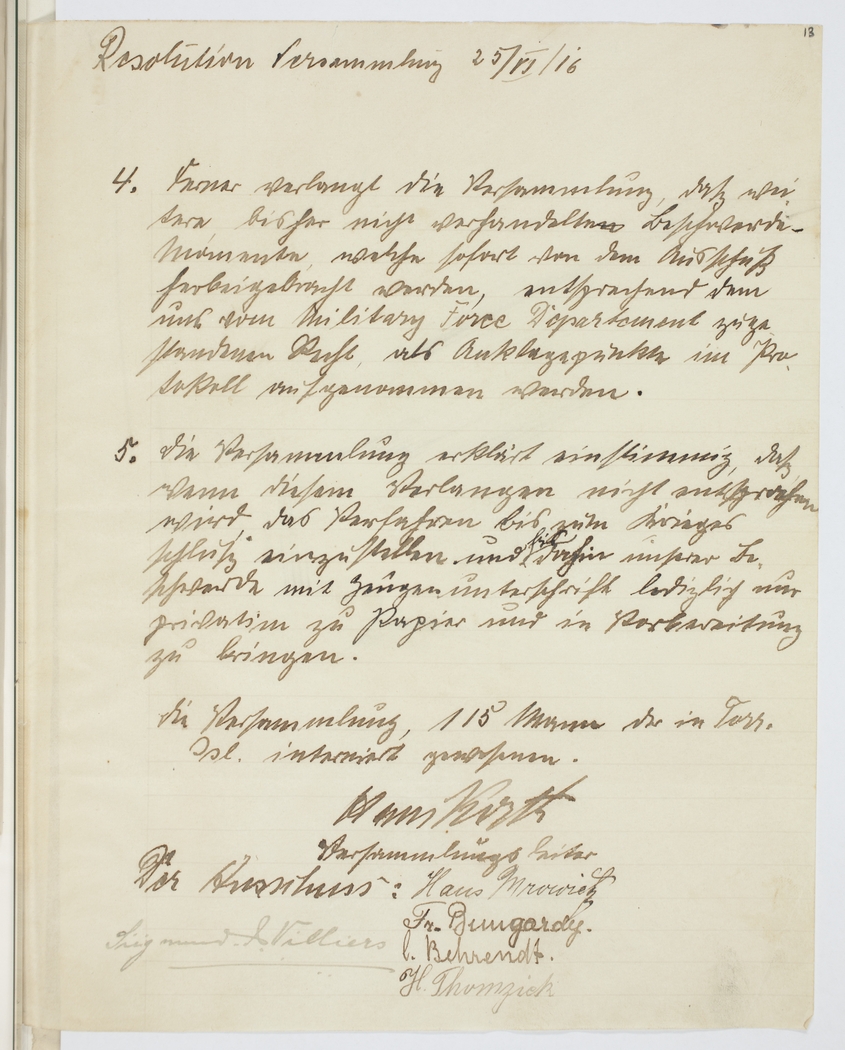 13
Resolution Versammlung 25/VI/16
4. Ferner verlangt die Versammlung, daß wei-
tere, bisher nicht verhandelten Beschwerde-
Momente, welche sofort von dem Ausschuß
herbeigebracht werden, entsprechend dem
uns vom Military Force Departement zuge-
standenen Recht, als Anklagepunkte im Pro-
tokoll aufgenommen werden.
5. die Versammlung erklärt einstimmig, daß,
wenn diesem Verlangen nicht entsprochen
wird, das Verfahren bis zum Krieges
schluß einzustellen und bis dahin unserer Be-
schwerde mit Zeugenunterschrift lediglich nur
privatim zu Papier und in Vorbereitung
zu bringen.
die Versammlung, 115 Mann der in Torr.
Isl. interniert gewesenen.
Hans
Versammlungsleiter
Der Ausschuss: Hans Mrowietz
Fr. Bungardy.
Siegmund de Villiers
C. Behrendt.
H. Thomzick